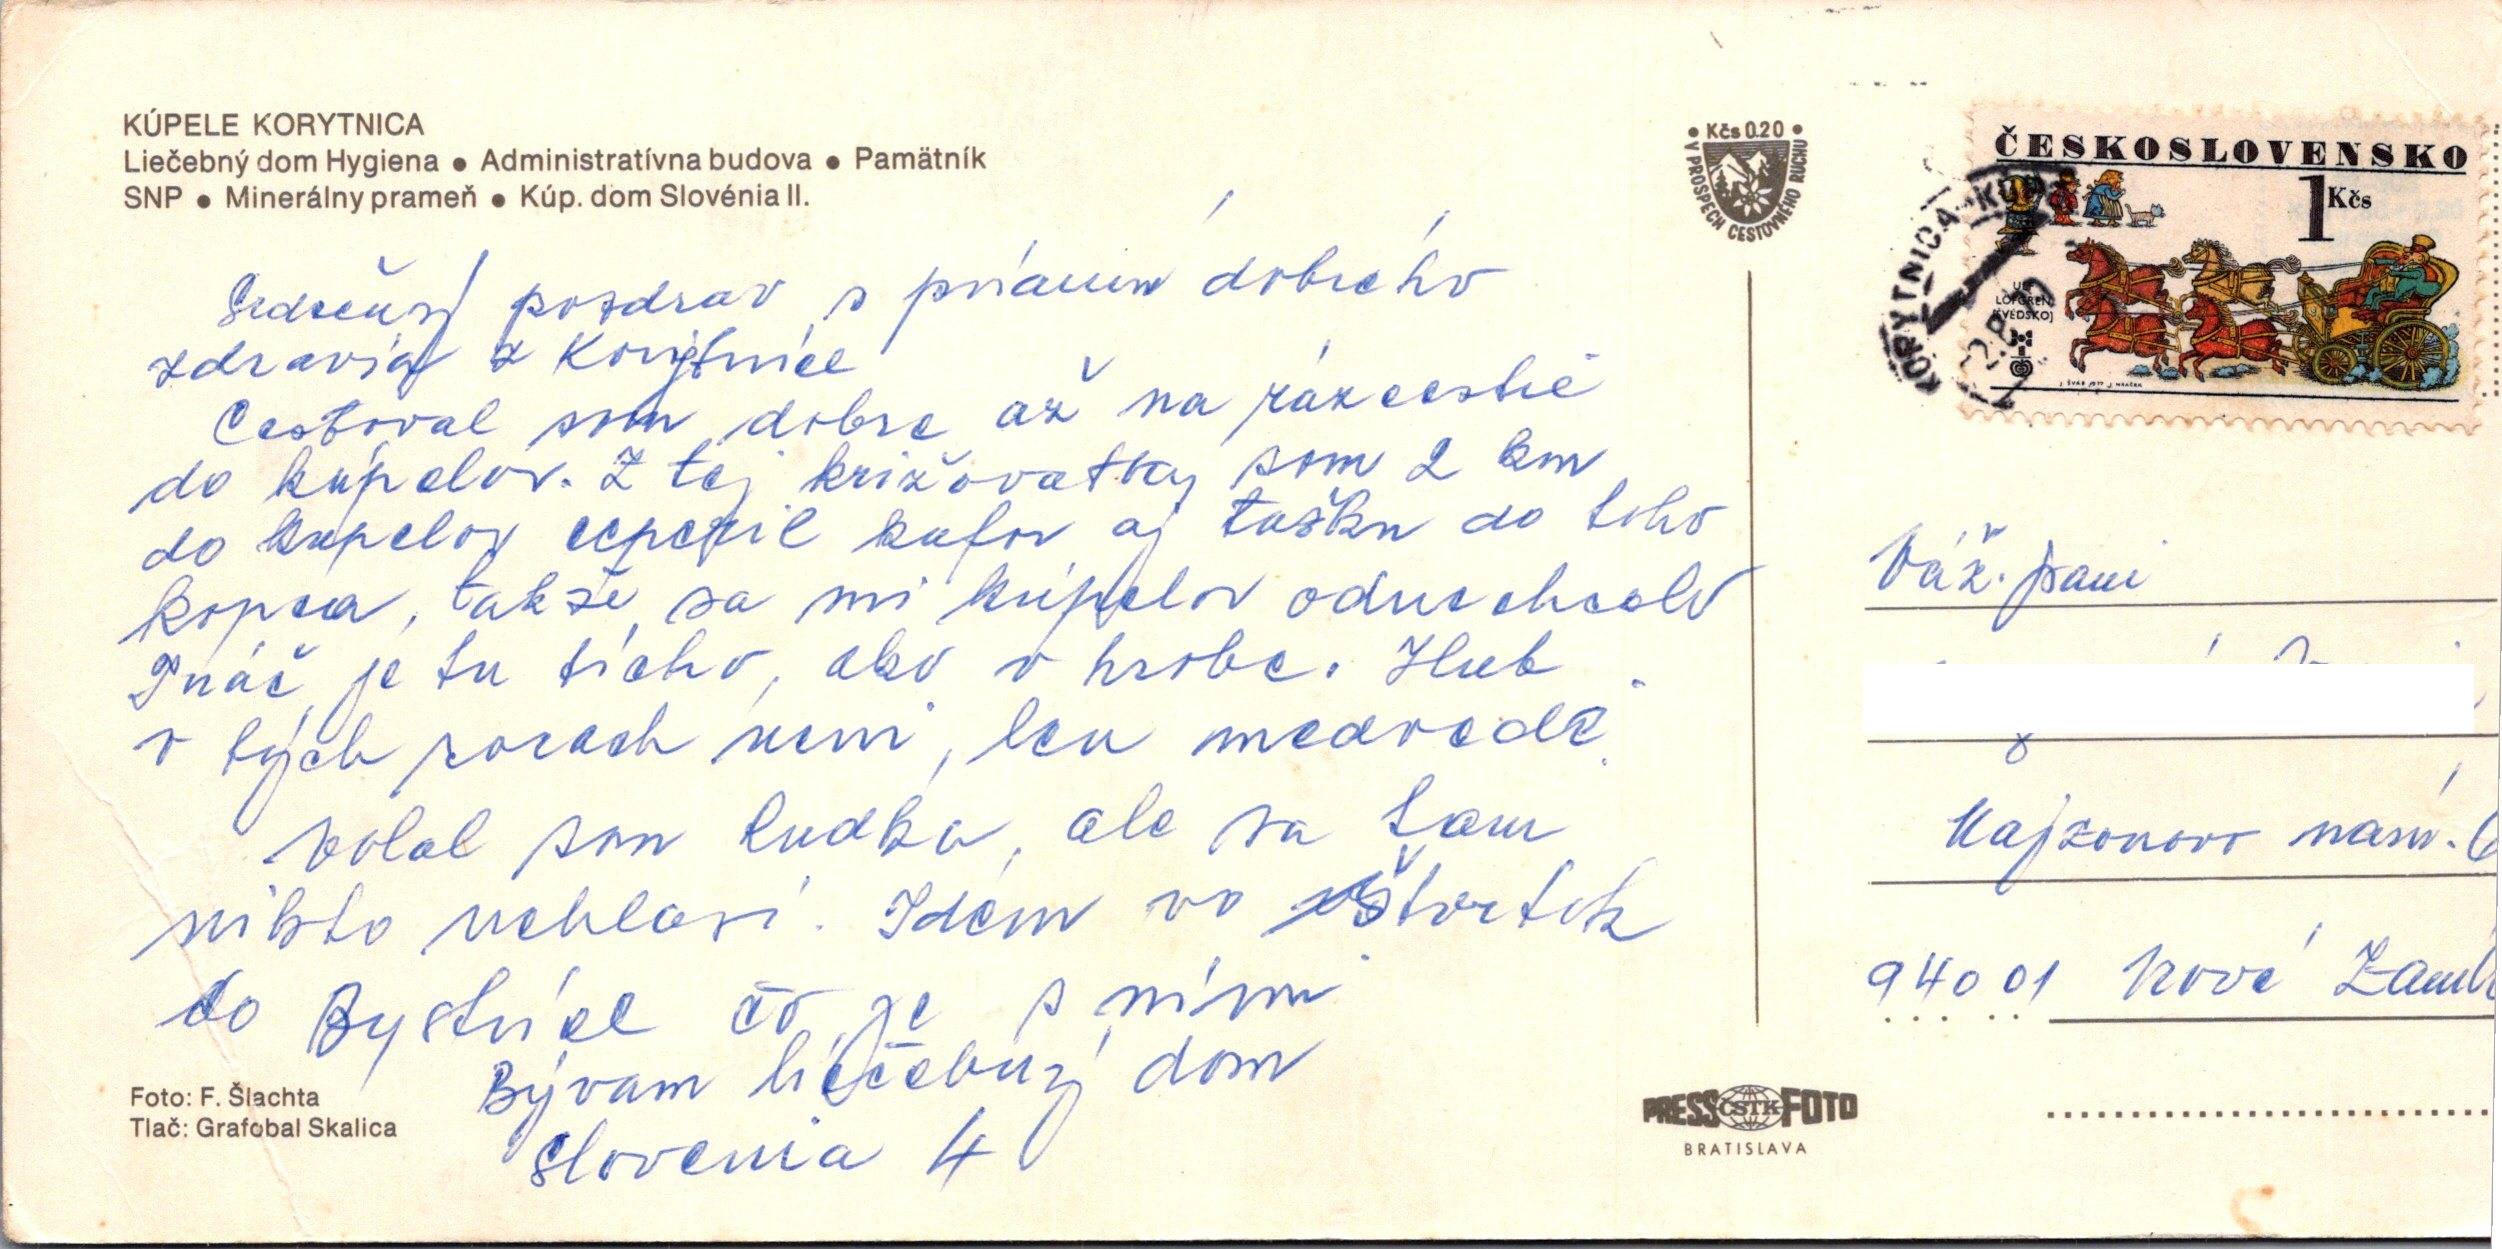 KÚPELE KORYTNICA
Liečebný dom Hygiena ● Administratívna budova ● Pamätník
SNP ● Minerálny prameň ● Kúp. dom Slovénia II.
Srdečný pozdrav s prianim dobrého
zdravia z Korytnice
Cestoval som dobre až na rázcestie
do kúpelov. Z tej križovatky som 2 km
do kúpelov kufor aj tašku do toho
kopca, takže sa mi kúpelov odnechcelo
Ináč je tu ticho, ako v hrobe. Húb
v tých horach neni, len medvede.
Volal som Rudka, ale sa tam
nikto nehlási. Idem vo štvrtok
do Bystrice čo je s nimi
Bývam liečebný dom
Slovenia 4
Foto: F. Šlachta
Tlač: Grafobal Skalica
• Kčs 0.20 •
V PROSPECH CESTOVNÉHO RUCHU
ČESKOSLOVENSKO
1 Kčs
ULF
LÖFGREN
[ŠVÉDSKO]
J. ŠVÁB 1977 J. HERČÍK
KORYTNICA-KÚP
Váž. pani
Kajzonovo nám. 6
940 01 Nové Zámk
PRESS ČSTK FOTO
BRATISLAVA